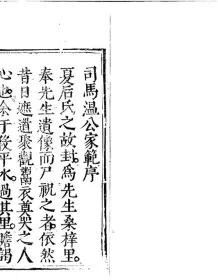 司馬溫公家範序
夏后氏之故封為先生桑梓里
奉先生遺像而尸祝之者依然
昔日遮道聚觀鬻衣奠哭之人
心也余于役平水過其里瞻謁